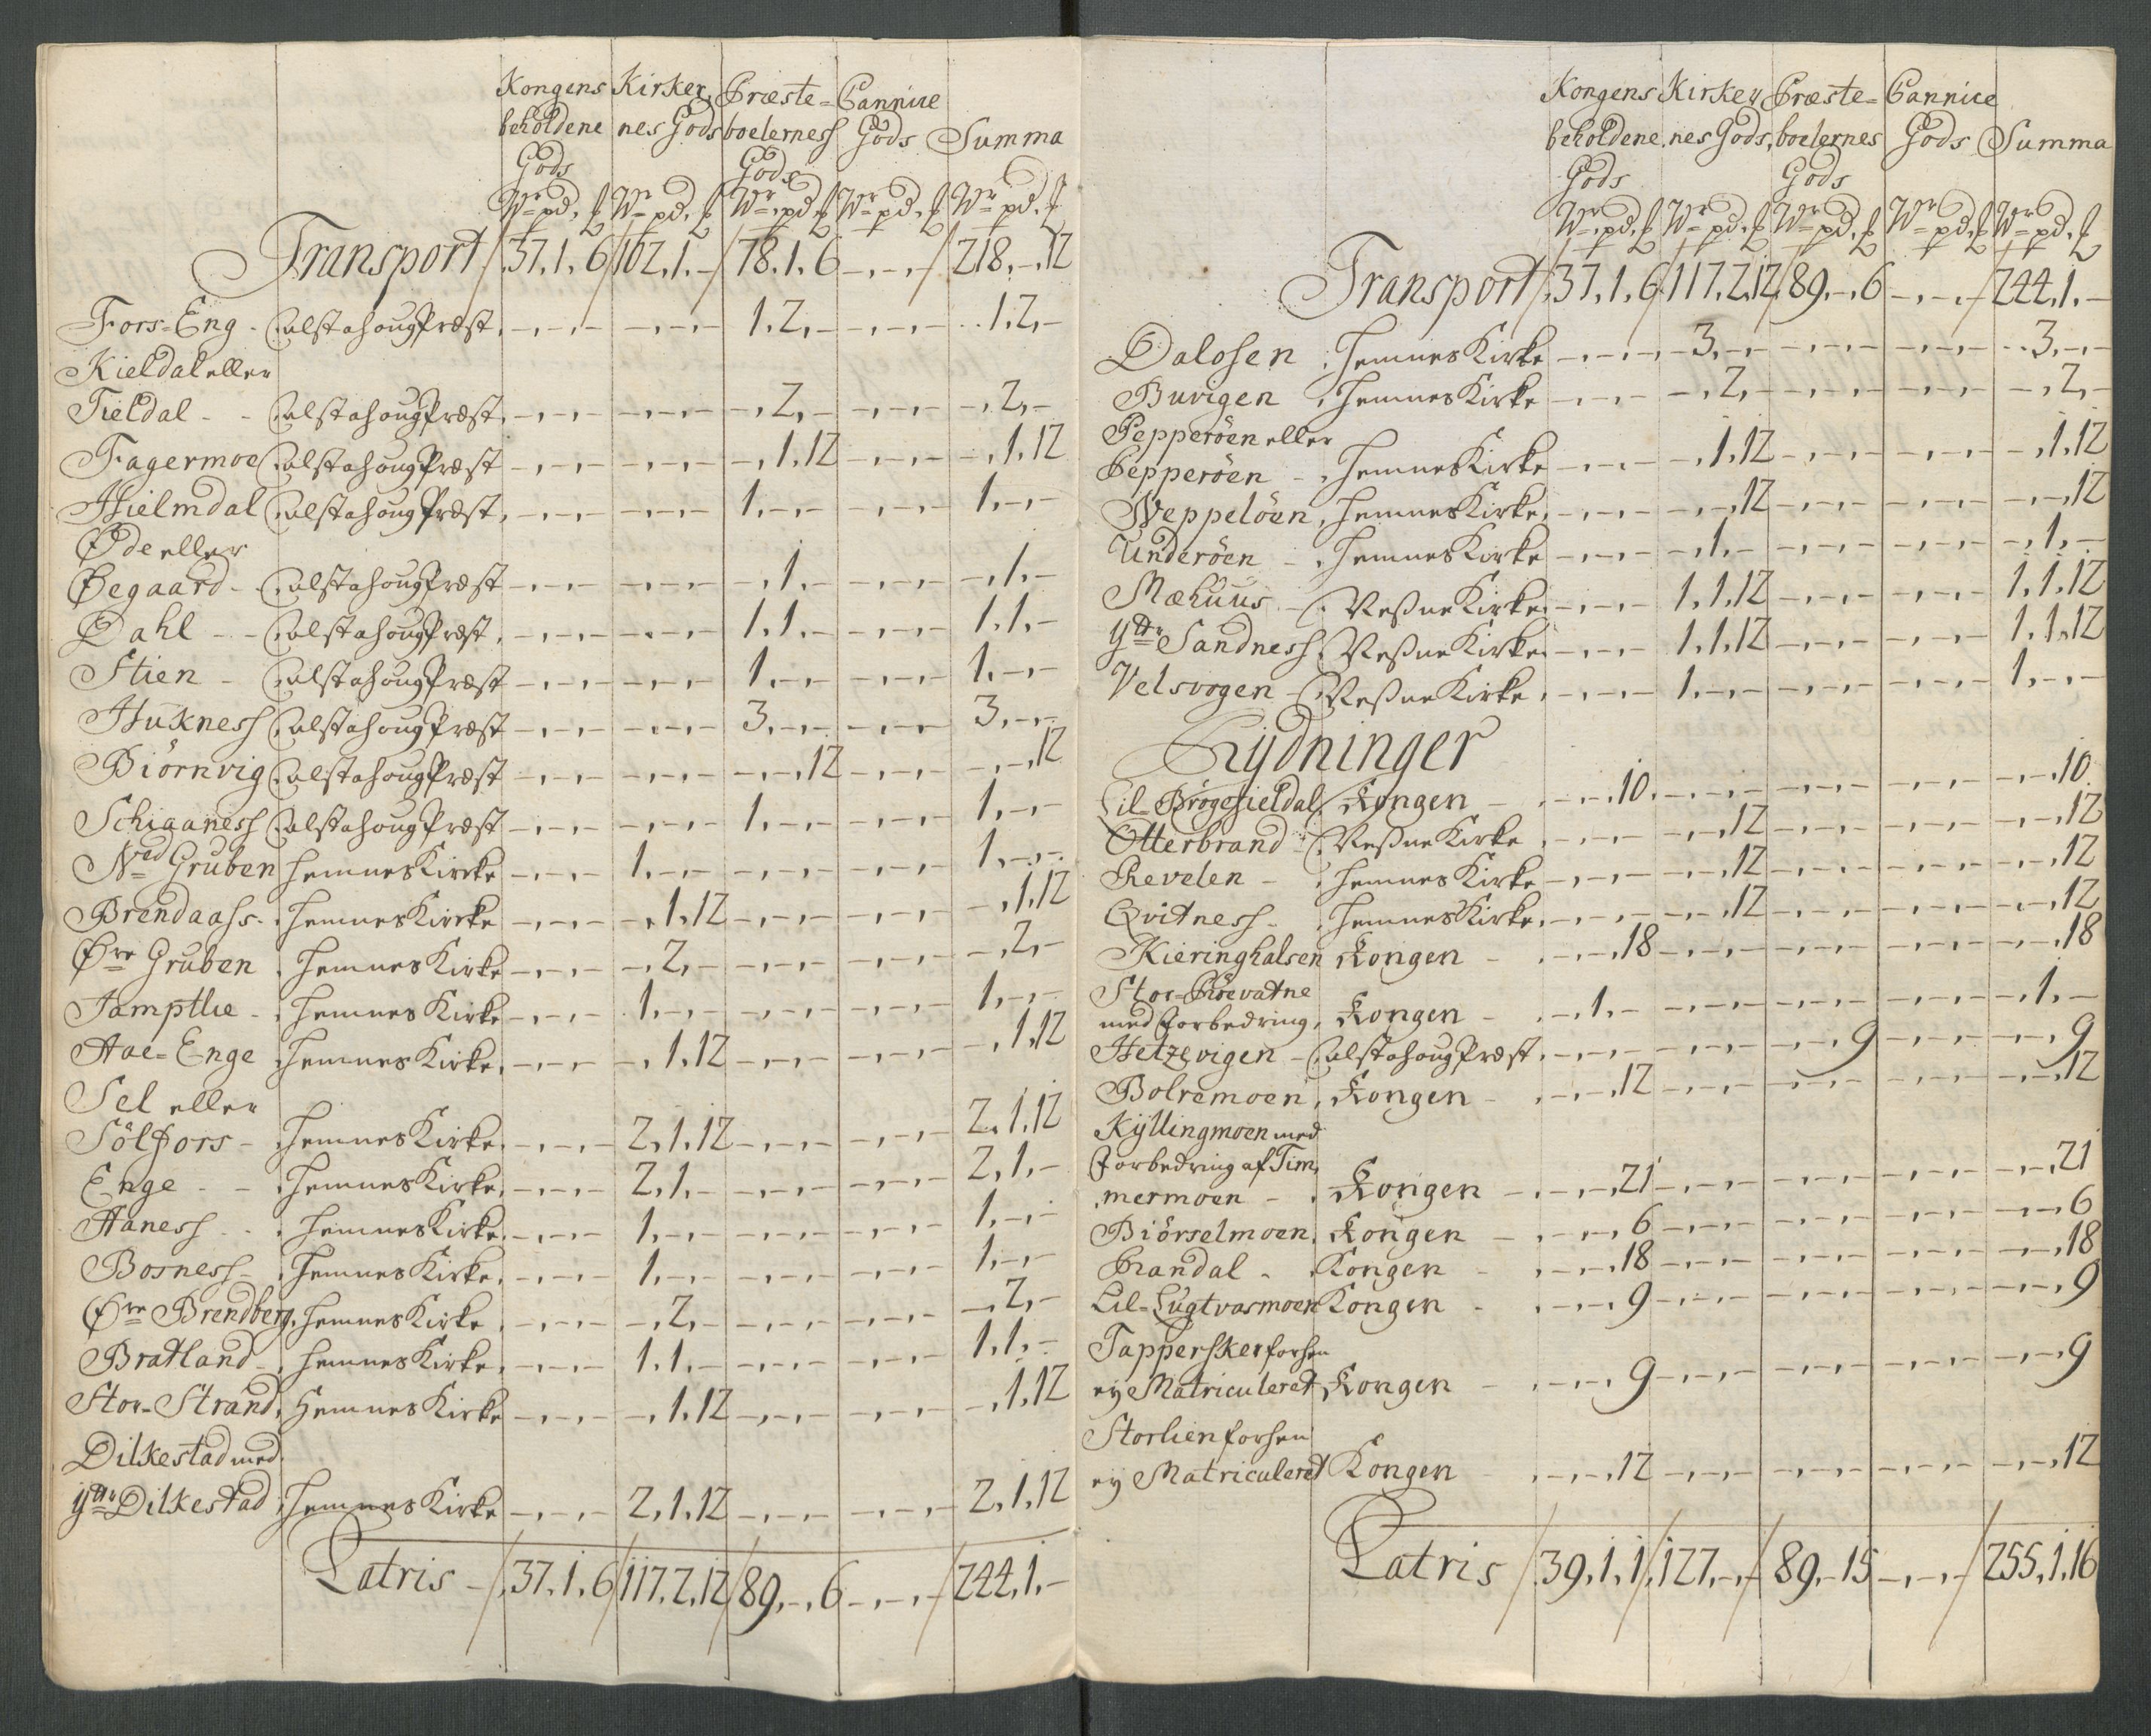 Kongens Kirker, Præste= Cannice
beholdene nes Gods boelerness Gods Summa
Gods Gods
Wr pd. Wr pd. Wr pd. Wr pd. Wr pd.
Transport 37. 1. 6 102. 1. - 78. 1. 6 -. -. - 218. -. 12
Fors=Eng - alstahoug Præst. -. -. - -. -. - 1. 2. - -. -. - 1. 2. -
Kieldal eller
Tieldal - - alstahoug Præst. -. -. - -. -. - -. 2. - -. -. - -. 2. -
Fagermoe alstahoug Præst -. -. - -. -. - -. 1. 12 -. -. - -. 1. 12
Hielmdal alstahoug Præst. -. -. - -. -. - 1. -. - -. -. - 1. -. -
Øde eller
Øegaard - alstahoug Præst -. -. - -. -. - -. 1. - -. -. - -. 1. -
Dahl - - alstahoug Præst. -. -. - -. -. - 1. 1. - -. -. - 1. 1. -
Stien - alstahoug Præst -. -. - -. -. - 1. -. - -. -. - 1. -. -
Hukness alstahoug Præst -. -. - -. -. - 3. -. - -. -. - 3. -. -
Biörnvig alstahoug Præst -. -. - -. -. - -. -. 12 -. -. - -. -. 12
Schiaaness alstahoug Præst -. -. - -. -. - 1. -. - -. -. - 1. -. -
Ned Gruben Hemnes Kirke -. -. - 1. -. - -. -. - -. -. - 1. -. -
Brendaass. Hemnes Kirke -. -. - -. 1. 12 -. -. - -. -. - -. 1. 12
Øre Gruben. Hemnes Kirke -. -. - -. 2. - -. -. - -. -. - -. 2. -
Jamptlie - Hemnes Kirke -. -. - 1. -. - -. -. - -. -. - 1. -. -
Aae=Enge Hemnes Kirke. -. -. - -. 1. 12 -. -. - -. -. - -. 1. 12
Sel eller
Sölfors - Hemnes Kirke. -. -. - 2. 1. 12 -. -. - -. -. - 2. 1. 12
Enge - - Hemnes Kirke. -. -. - 2. 1. - -. -. - -. -. - 2. 1. -
Aaness - - Hemnes Kirke. -. -. - 1. -. - -. -. - -. -. - 1. -. -
Bosness - Hemnes Kirke. -. -. - 1. -. - -. -. - -. -. - 1. -. -
Øre Brendberg. Hemnes Kirke. -. -. - -. 2. - -. -. - -. -. - -. 2. -
Bratland - Hemnes Kirke. -. -. - 1. 1. - -. -. - -. -. - 1. 1. -
Stor=Strand. Hemnes Kirke -. -. - -. 1. 12 -. -. - -. -. - -. 1. 12
Dilkestad med
Ÿttr Dilkestad Hemnes Kirke -. -. - 2. 1. 12 -. -. - -. -. - 2. 1. 12
Latris - 37. 1. 6 117. 2. 12 89. -. 6 -. -. - 244. 1. -
Kongens Kirker Præste= Cannice
beholdene. nes Gods, boelernes Gods Summa
Gods Gods
Wr pd. Wr pd. Wr pd. Wr pd. Wr pd.
Transport 37. 1. 6 117. 2. 12 89. -. 6 -. -. - 244. 1. -
Dalosen. Hemnes Kirke -. -. - 3. -. - -. -. - -. -. - 3. -. -
Buvigen. Hemnes Kirke -. -. - -. 2. - -. -. - -. -. - -. 2. -
Pepperöen eller
Pepperöen - Hemnes Kirke -. -. - -. 1. 12 -. -. - -. -. - -. 1. 12
Weppelöen. Hemnes Kirke. -. -. - -. -. 12 -. -. - -. -. - -. -. 12
Underöen - Hemnes Kirke -. -. - -. 1. - -. -. - -. -. - -. 1. -
Mæhuus - Veßne Kirke. -. -. - 1. 1. 12 -. -. - -. -. - 1. 1. 12
Ÿttr Sandness. Veßne Kirke. -. -. - 1. 1. 12 -. -. - -. -. - 1. 1. 12
Velsvogen - Veßne Kirke. -. -. - 1. -. - -. -. - -. -. - 1. -. -
Rÿdninger
Lil=Brøgefieldal Kongen - -. -. 10. -. -. - -. -. - -. -. - -. -. 10
Otterbrand - Veßne Kirke. -. -. - -. -. 12 -. -. - -. -. - -. -. 12
Revelen - Hemnes Kirke -. -. - -. -. 12 -. -. - -. -. - -. -. 12
Qvitness - Hemnes Kirke. -. -. - -. -. 12 -. -. - -. -. - -. -. 12
Kieringhalsen Kongen - -. -. 18 -. -. - -. -. - -. -. - -. -. 18
Stor=Røevatne
med Forbedring, Kongen - -. 1. - -. -. - -. -. - -. -. - -. 1. -
Hetzevigen - alstahoug Præst. -. -. - -. -. - -. -. 9 -. -. - -. -. 9
Bolremoen, Kongen - -. -. 12 -. -. - -. -. - -. -. - -. -. 12
Kÿllingmoen med
Forbedring af Tim,
mermoen - Kongen - -. -. 21 -. -. - -. -. - -. -. - -. -. 21
Biörselmoen. Kongen - -. -. 6 -. -. - -. -. - -. -. - -. -. 6
Randal - Kongen - -. -. 18 -. -. - -. -. - -. -. - -. -. 18
Lil=Lugtvasmoen Kongen - -. -. 9 -. -. - -. -. - -. -. - -. -. 9
Tappersker forhen
eÿ Matriculeret Kongen - -. -. 9 -. -. - -. -. - -. -. - -. -. 9
Storlien forhen
eÿ Matriculeret Kongen - -. -. 12 -. -. - -. -. - -. -. - -. -. 12
Latris 39. 1. 1. 127. -. - 89. - 15 -. -. - 255. 1. 16